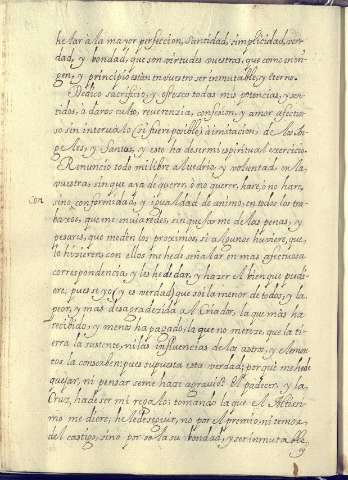 helar à la mayor perfeccion, santidad, simplicidad, ver-
dad, y bondad, que son virtudes vuestras, que como ori-
gen, y principio estàn en vuestro ser inmutable, y eterno.
Dedico, sacrifico, y ofresco todas mis potencias, y sen-
tidos, à daros culto, reverenzia, confesion, y amor afectuo-
so sin intervalo (si fuere posible) à imitacion de los An-
geles, y Santos, y esto ha de ser mi espiritual exercicio.
Renuncio todo mi libre alvedrio, y voluntad, en la
vuestra, sin que aya de querer, ò no querer, hare, ò no hare,
son
sino conformidad, y igualdad de animo, en todos los tra-
baxos, que me enviaredes, sin quejarme de las penas, y
pesares, que me dèn los proximos, si algunos huviere, que
lo hizieren, con ellos me he de señalar en mas afectuosa
correspondencia, y les he de dar, y hazer el bien que pudi-
ere; pues se yo (y es verdad) que soi la menor de todos, y la
peor, y mas desagradezida al Criador, la que màs ha
recibido, y menos ha pagado, la que no mereze, que la tie-
rra la sustente, ni las influencias de los astros, y elemen-
tos la conserben: pues supuesta esta verdad, porque me he de
quejar, ni pensar se me haze agravio? El padecer, y la
Cruz, ha de ser mi regalo; tomando la que el Altissi-
mo me diere, he le de seguir, no por el premio, ni temor
del castigo, sino por sola su bondad, y ser inmutable,
y